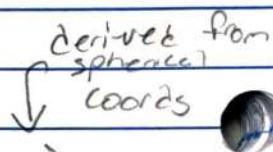 derived from
spherical
coords